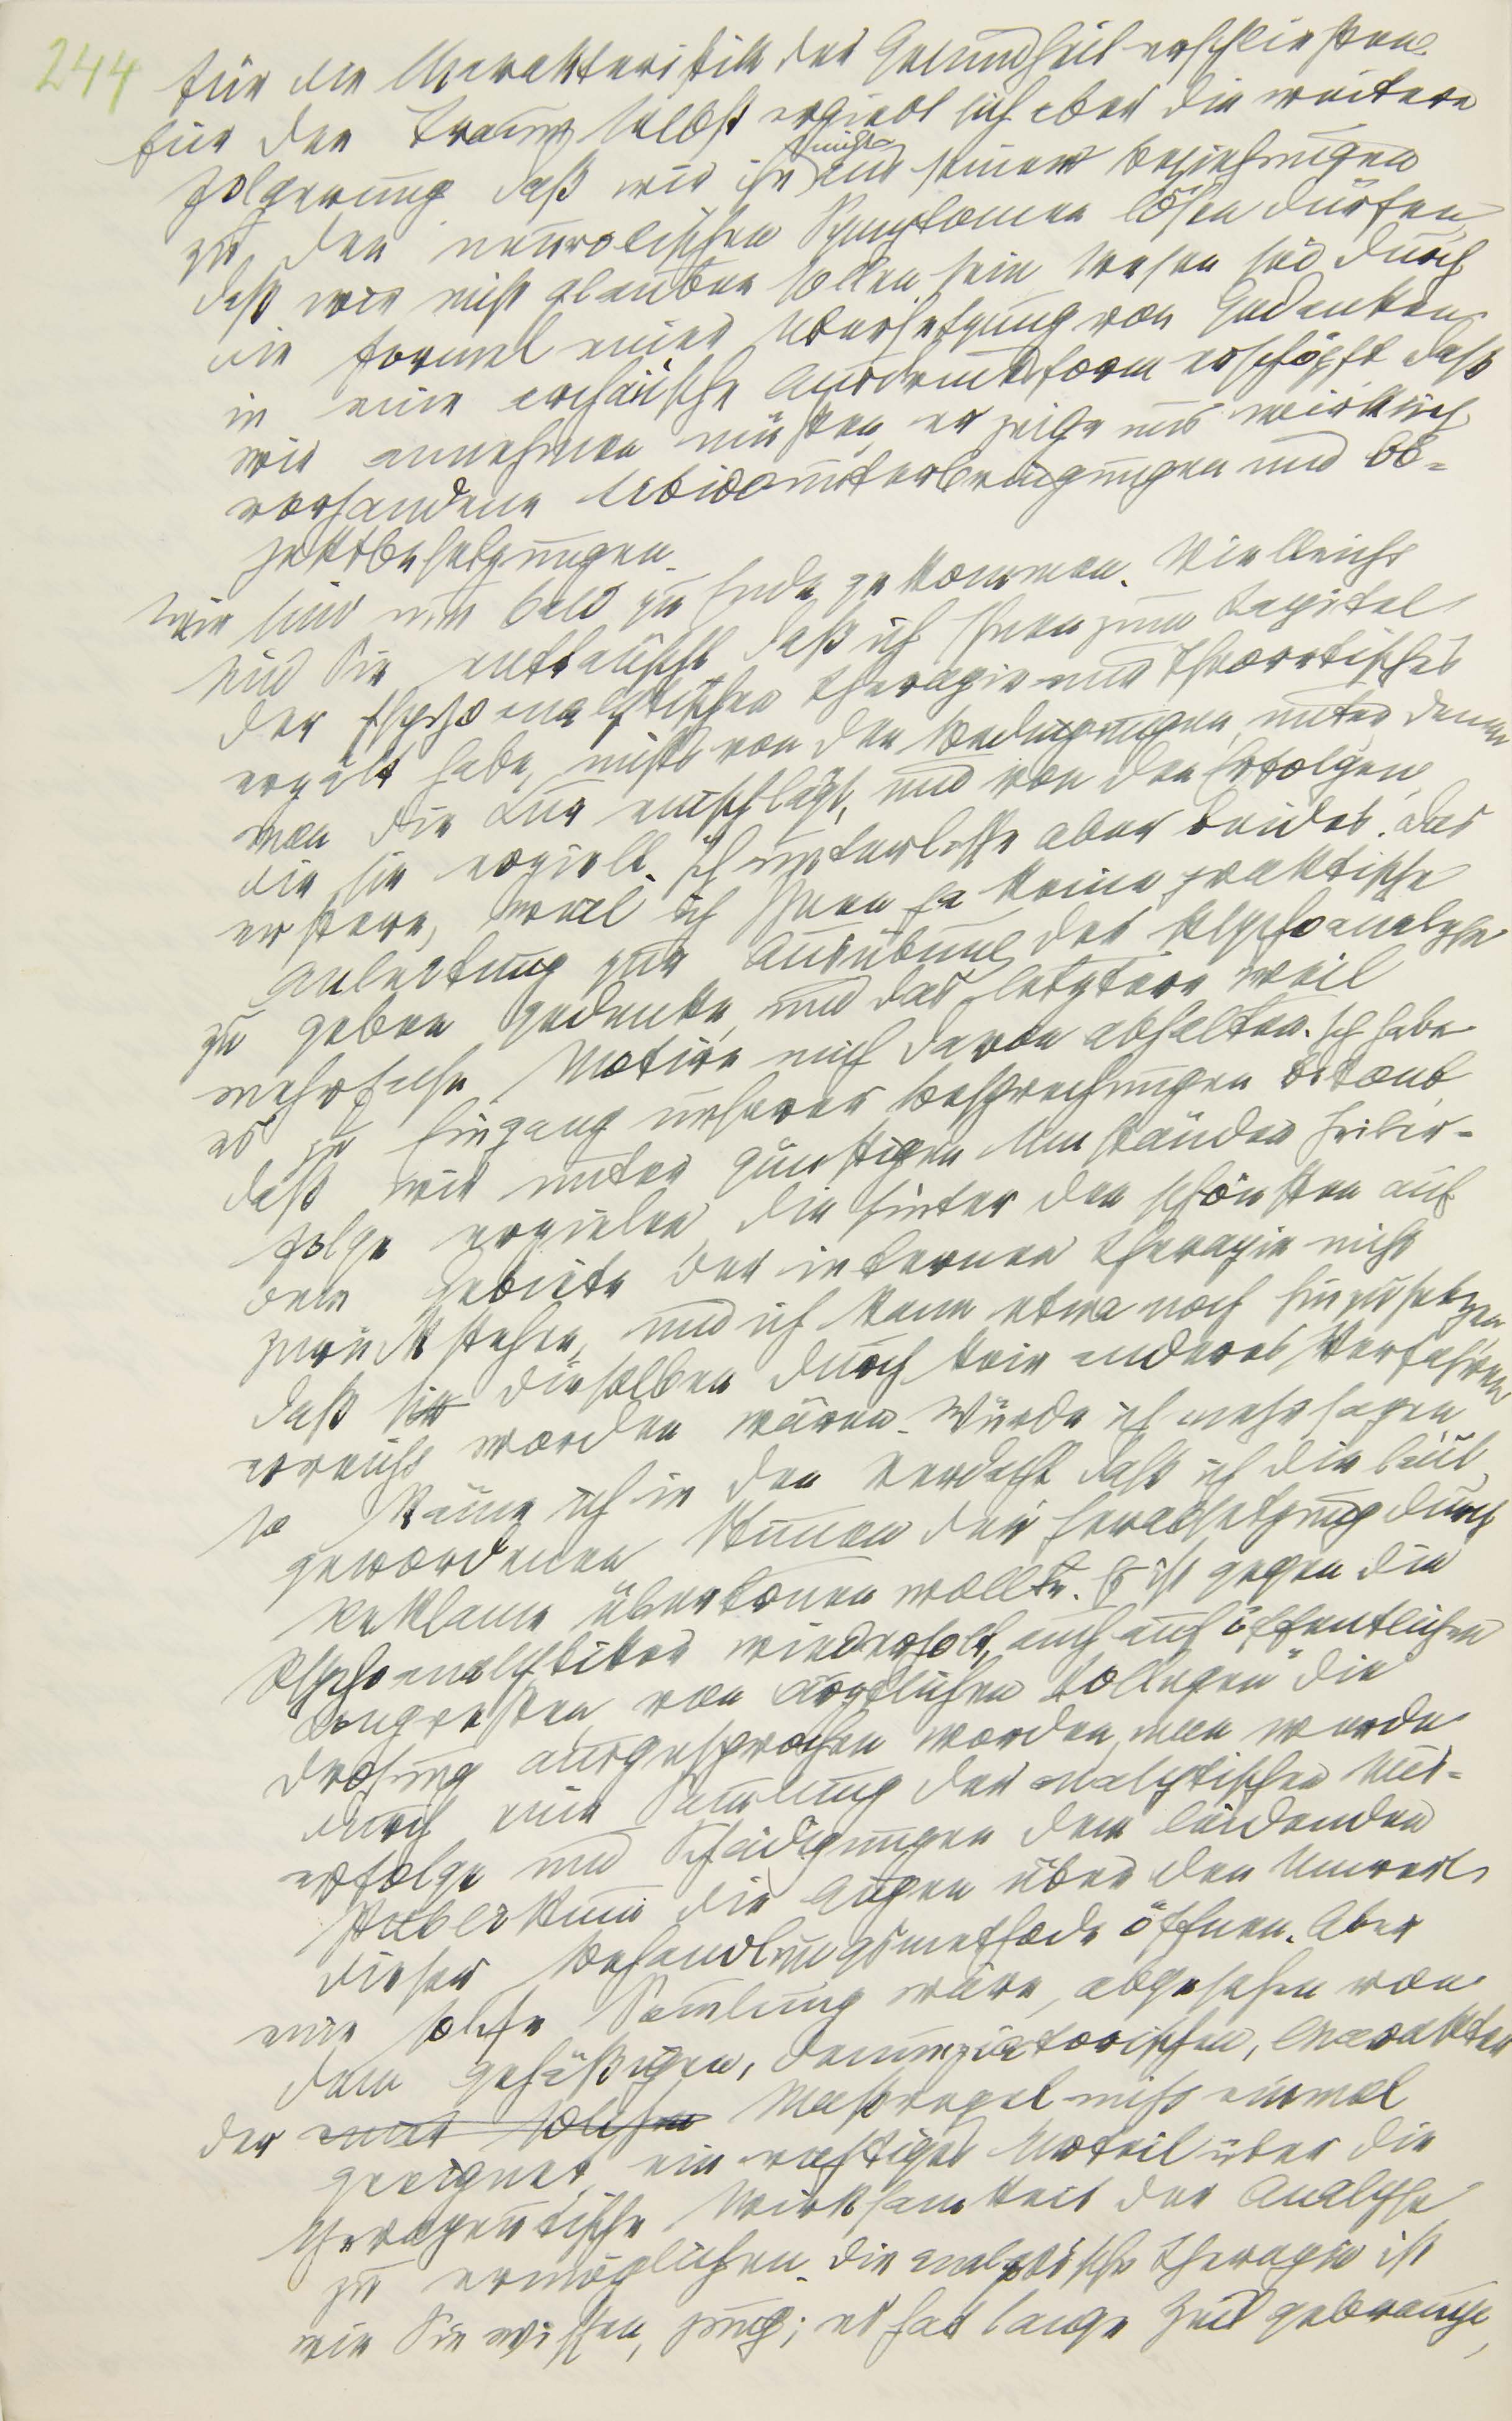 244
für die Charakteristik der Gesundheit erschließen.
Für den Traum selbst ergiebt sich aber die weitere
Folgerung daß wir ihn nicht aus seinen Beziehungen
zu den neurotischen Symptomen lösen dürfen,
daß wir nicht glauben sollen sein Wesen sei durch
die Formel einer Übersetzung von Gedanken
in eine archaische Ausdrucksform erschöpft daß
wir annehmen müßen, er zeige uns wirklich
vorhandene Libidounterbringungen und Ob-
jektbesetzungen.
Wir sind nun bald zu Ende gekommen. Vielleicht
sind Sie enttäuscht daß ich Ihnen zum Kapitel
der psychoanalytischen Therapie nur Theoretisches
erzält habe, nichts von den Bedingungen, unter denen
man die Kur einschlägt, und von den Erfolgen,
die sie erzielt. Ich unterlasse aber beides. Das
erstere, weil ich Ihnen ja keine praktische
Anleitung zur Ausübung der Psychoanalyse
zu geben gedenke, und das letztere weil
mehrfache Motive mich davon abhalten. Ich habe
es zu Eingang unserer Besprechungen betont,
daß wir unter günstigen Umständen Heiler-
folge erzielen, die hinter den schönsten auf
dem Gebiete der internen Therapie nicht
zurückstehen, und ich kann etwa noch hinzusetzen,
daß dieselben durch kein anderes Verfahren
erreicht worden wären. Würde ich mehr sagen
so käme ich in den Verdacht daß ich die laut
gewordenen Stimmen der Herabsetzung durch
Reklame übertönen wollte. Es ist gegen die
Psychoanalytiker wiederholt, auch auf öffentlichen
Congressen, von ärztlichen „Kollegen“ die
Drohung ausgesprochen worden, man werde
durch eine Samlung der analytischen Mis-
erfolge und Schädigungen dem leidenden
Publikum die Augen über den Unwert
dieser Behandlungsmethode öffnen. Aber
eine solche Samlung wäre, abgesehen von
dem gehäßigen, denunziatorischen, Charakter
der einer solchen Maßregel nicht einmal
geeignet, ein richtiges Urteil über die
therapeutische Wirksamkeit der Analyse
zu ermöglichen. Die analytische Therapie ist
wie Sie wissen, jung; es hat lange Zeit gebraucht,